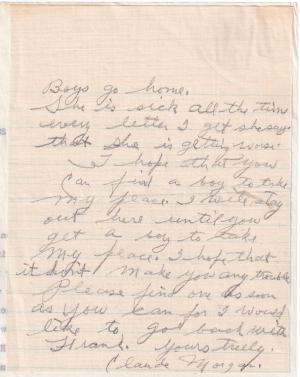 Boys go home.
She is sick all the time
every letter I get she says
that she is getting worse
I hope that you
Can find a boy to take
my place. I will stay
out here until you
get a boy to take
My place. I hope that
it dont make you any trouble
Please find one as soon
as you can for I would
like to go back with
Frank. Yours truly.
Claude Morgan.